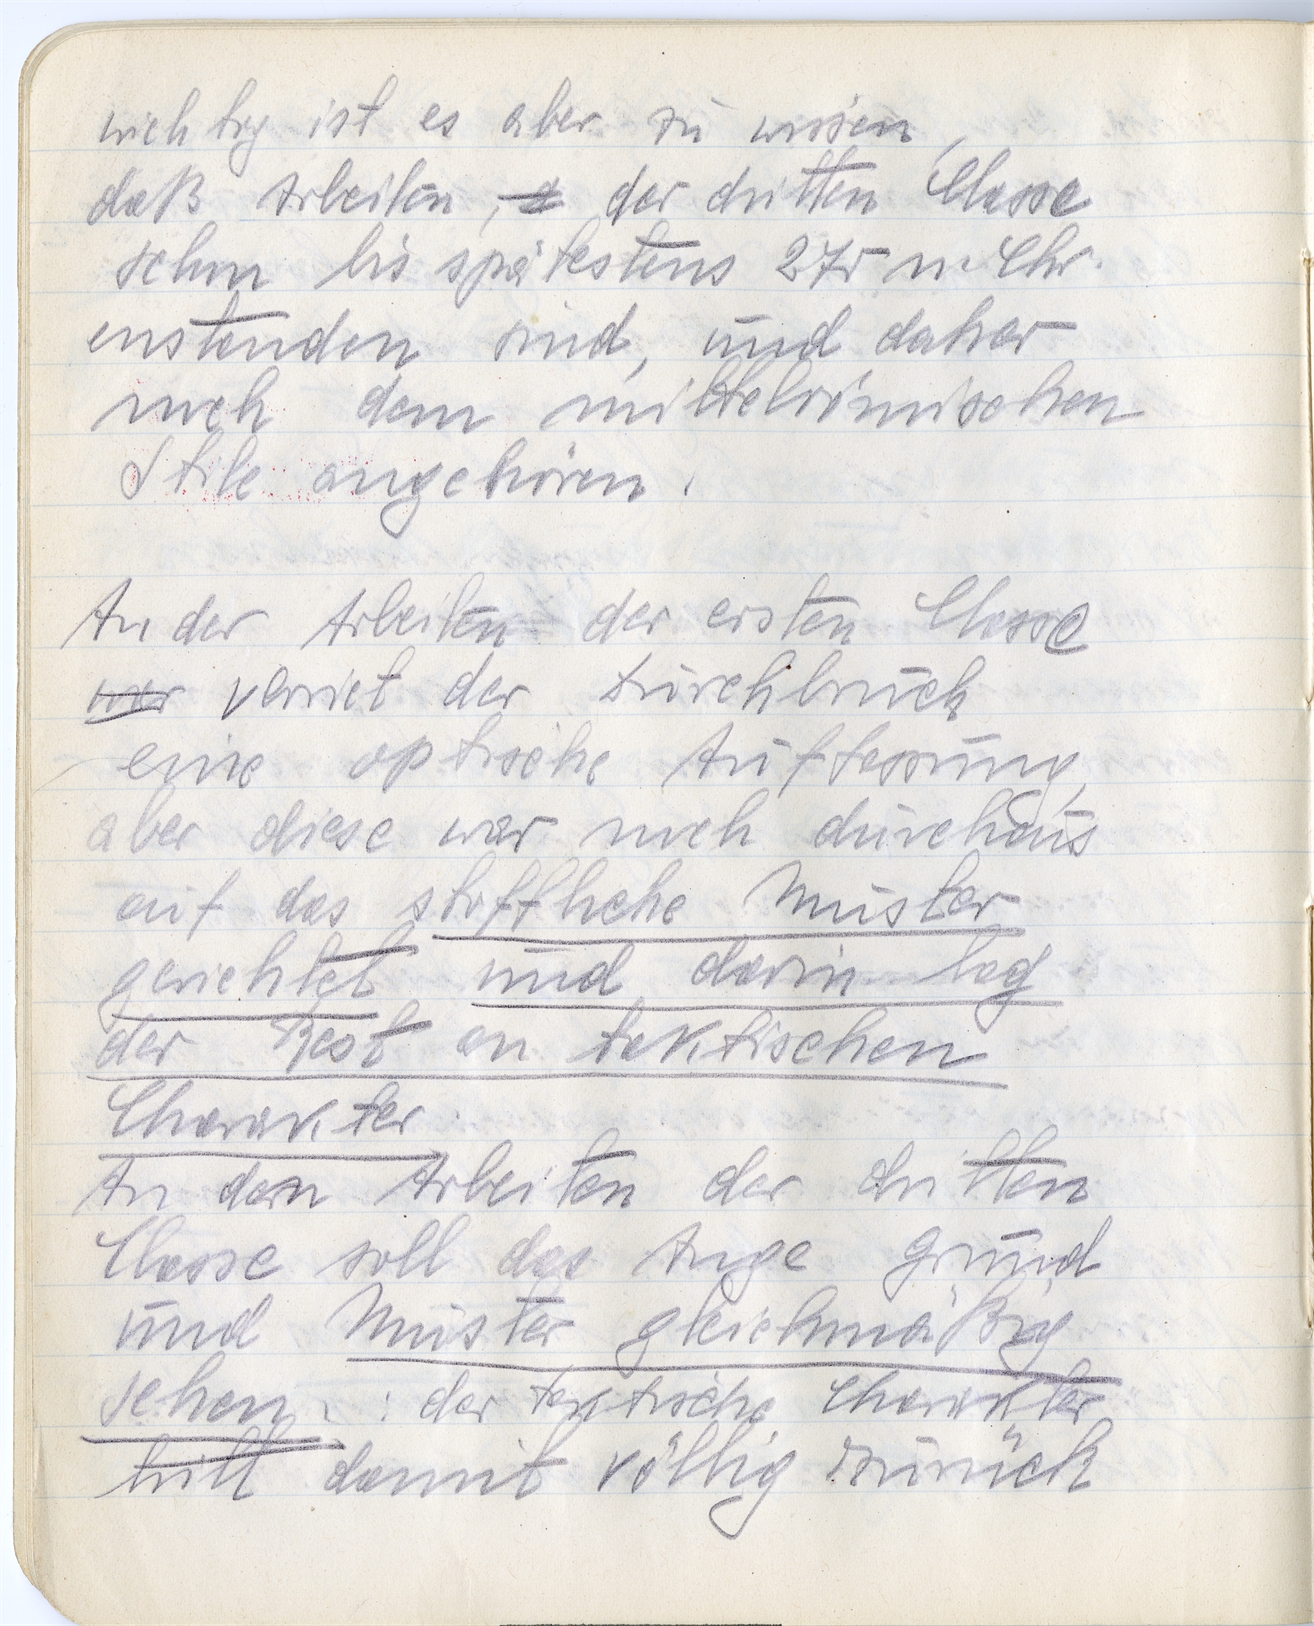 wichtig ist es aber zu wissen,
daß Arbeiten, der dritten Classe
schon bis spätestens 275 n. Chr.
enstanden sind, und daher
noch dem mittelrömischen
Stile angehören.
An der Arbeiten der ersten Classe
war verriet der Durchbruch
eine optische Auffassung,
aber diese war noch durchaus
auf das stoffliche Muster
gerichtet und darin lag
der Rest an taktischen
Charakter.
An den Arbeiten der dritten
Classe soll das Auge Grund
und Muster gleichmäßig
sehen: der taktische Charakter
tritt damit völlig zurück